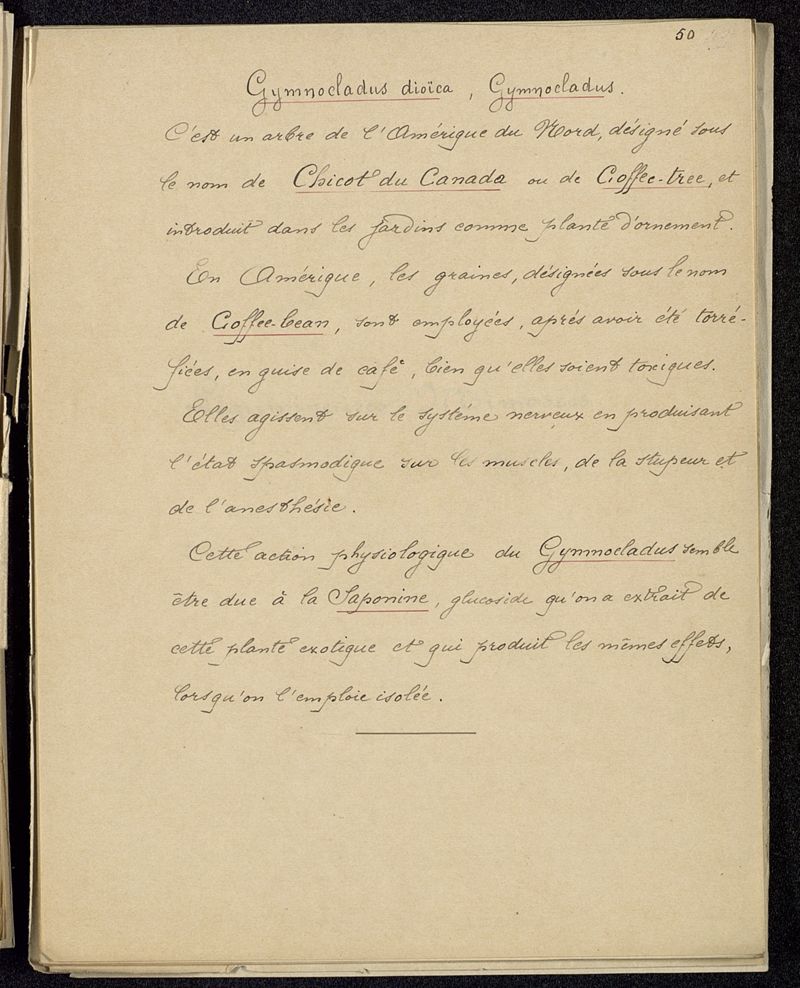 50
Gymnocladus dioïca, Gymnocladus.
C'est un arbre de l'Amérique du Nord, désigné sous
le nom de Chicot du Canada ou de Coffee-tree, et
introduit dans les jardins comme plante d'ornement.
En Amérique, les graines, désignées sous le nom
de Coffee-bean, sont employées, après avoir été torré-
fiées, en guise de café, bien qu'elles soient toxiques.
Elles agissent sur le système nerveux en produisant
l'état spasmodique sur les muscles, de la stupeur et
de l'anesthésie.
Cette action physiologique du Gymnocladus semble
être due à la Saponine, glucoside qu'on a extrait de
cette plante exotique et qui produit les mêmes effets,
lorsqu'on l'emploie isolée.